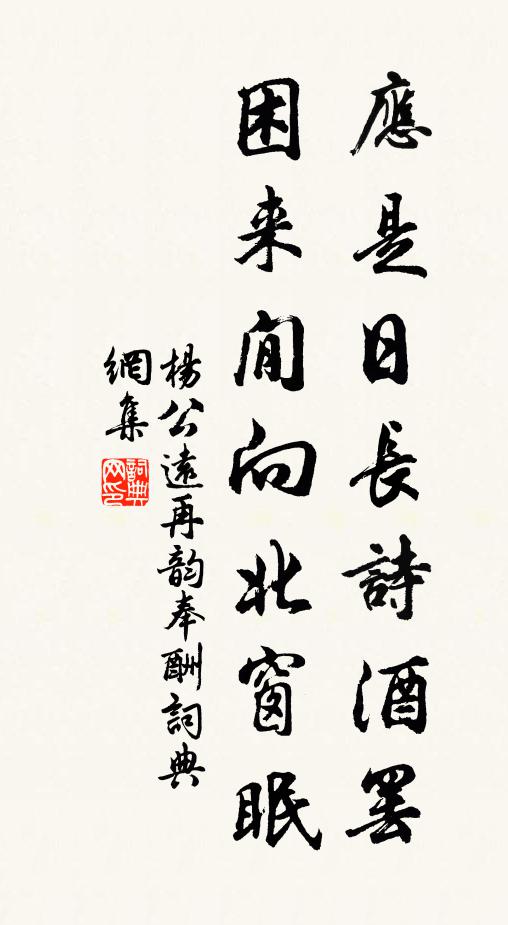 應是日長詩酒罢
困来閒向北窗眠
楊公遠再韵奉酬詞典
網集
詞典網印